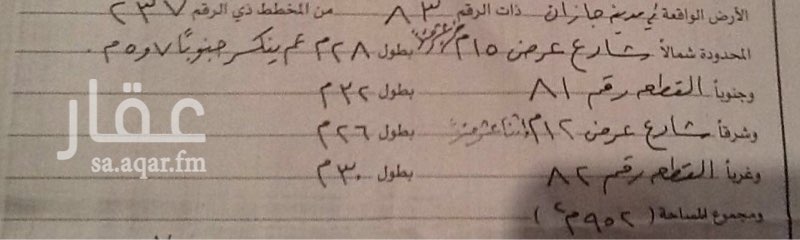 الأرض الواقعة في مدينة جازان ذات الرقم ٨٣ من المخطط ذي الرقم ٢٣٧
المحدودة شمالاً شارع عرض ١٥م بطول ٢٨م ثم ينكسر جنوبًا ٧و٥م
وجنوباً القطعه رقم ٨١ بطول ٣٢م
وشرقاً شارع عرض ١٢م إثنا عشر متر بطول ٢٦م
وغرباً القطعه رقم ٨٢ بطول ٣٠م
ومجموع المساحة (٩٥٢م٢)
عقار
sa.aqar.fm